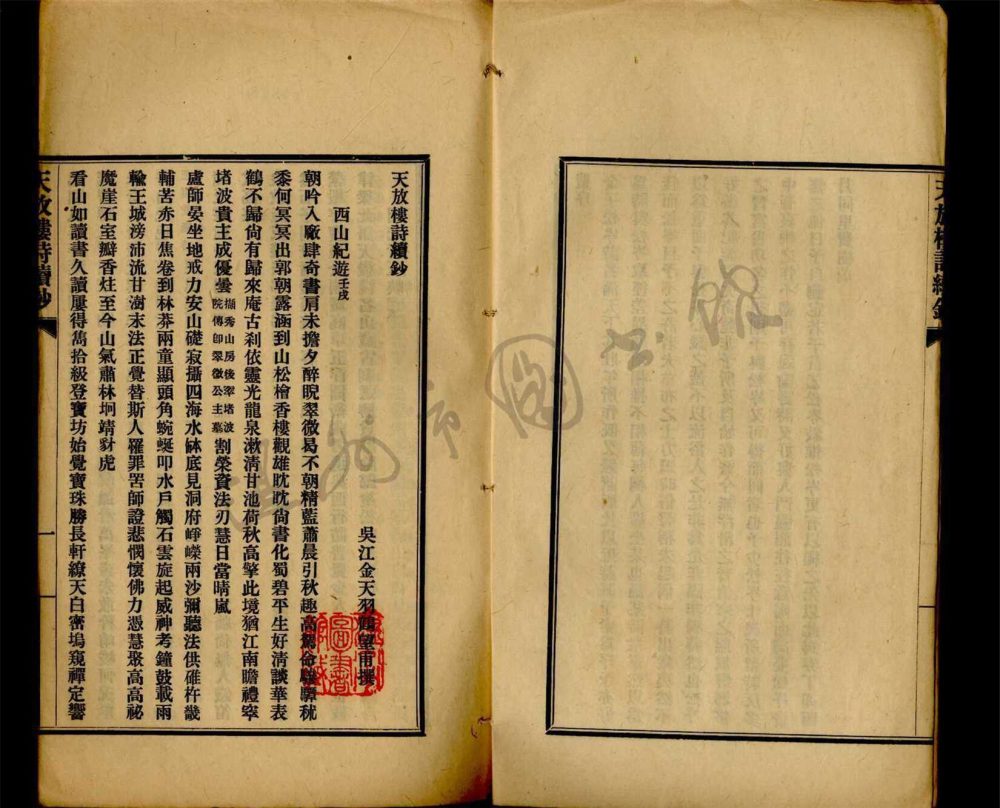 天放樓詩續鈔
吳江金天羽鶴望甫撰
西山紀遊壬戌
朝吟入廠肆奇書肩未擔夕醉睨翠微曷不朝精藍蕭晨引秋趣高駕命驂驔秫
黍何冥冥出郭朝露涵到山松檜香樓觀雄眈眈尙書化蜀碧平生好清談華表
鶴不歸尙有歸來庵古刹依靈光龍泉漱清甘池荷秋高擎此境猶江南瞻禮窣
堵波貴主成優曇擷秀山房後窣堵波院傳卽翠微公主墓割榮資法刃慧日當晴嵐
盧師晏坐地戒力安山礎寂攝四海水缽底見洞府崢嶸兩沙彌聽法供碓杵畿
輔苦赤日焦卷到林莽兩童顯頭角蜿蜒叩水戶觸石雲旋起威神考鐘鼓載雨
輸王城滂沛流甘澍末法正覺替斯人罹罪罟師證悲憫懷佛力憑慧聚高高祕
魔崖石室瓣香炷至今山氣肅林坰靖豺虎
看山如讀書久讀屢得雋拾級登寶坊始覺寶珠勝長軒繚天白密塢窺禪定響
天放樓詩續鈔
一
天放樓詩續鈔